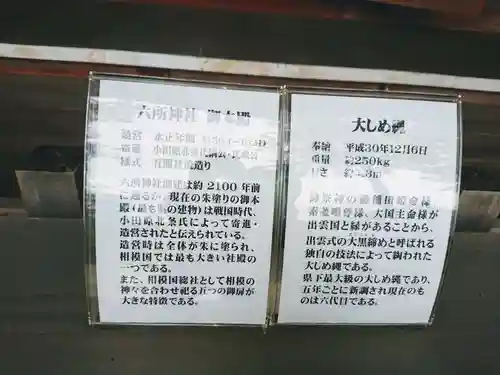 六所神社
造営 永正年間
寄進 小田原北条氏
様式 造り
六所神社創建は約2100年前
に遡るが、現在の朱塗りの御本
殿（最も の建物）は戦国時代、
小田原北条氏によって寄進・
造営されたと伝えられている。
造営時は全体が朱に塗られ、
相模国では最も大きい社殿
の一つである。
また、相模国総社として相模の
神々を合わせ祀る五つの御扉
が大きな特徴である。
大しめ縄
奉納 平成30年12月6日
重量 約250kg
長さ
御祭神の 稲田姫命様、
素盞嗚尊様、大国主命様が
出雲国と縁があることから、
出雲式の大黒締めと呼ばれる
独自の技法によって綯われた
大しめ縄である。
県下最大級の大しめ縄であり、
五年ごとに新調され現在のも
のは六代目である。